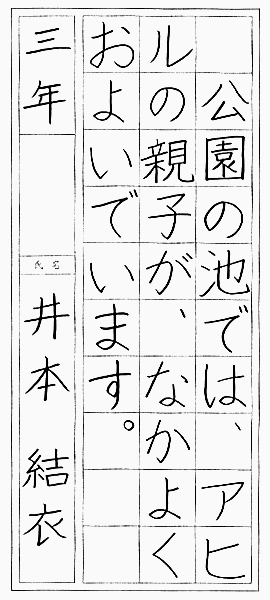 公園の池では、アヒ
ルの親子が、なかよく
およいでいます。
三年
氏名
井本 結衣